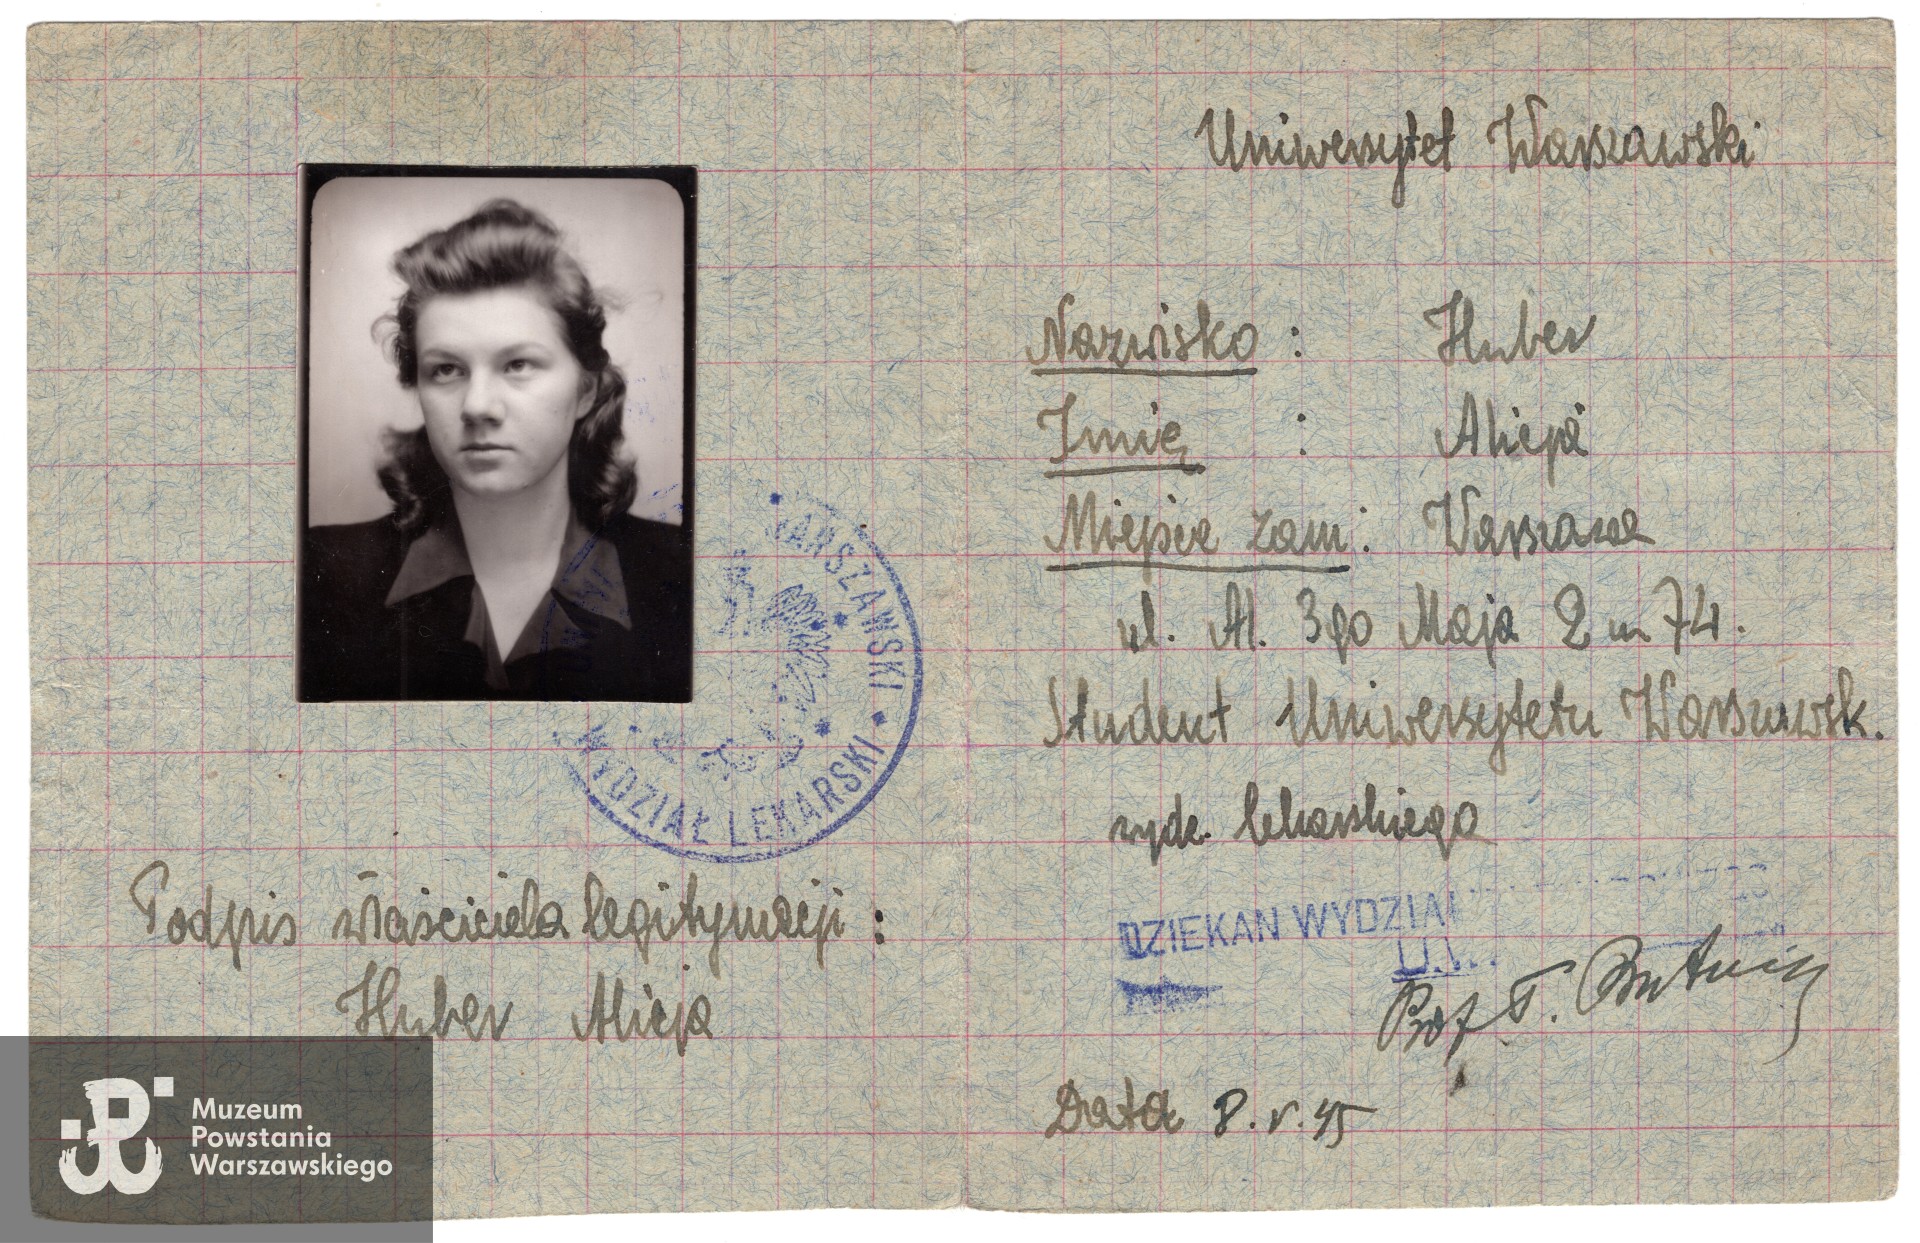 WARSZAWSKI
WYDZIAŁ LEKARSKI
Podpis właściciela legitymacji:
Huber Alicja
Uniwersytet Warszawski
Nazwisko : Huber
Imię : Alicja
Miejsce zam: Warszawa
ul. Al. 3go Maja 2 m 74.
Student Uniwersytetu Warszawsk.
wydz. lekarskiego
DZIEKAN WYDZIAŁ
Prof. T.
Data 8.V.45
Muzeum
Powstania
Warszawskiego